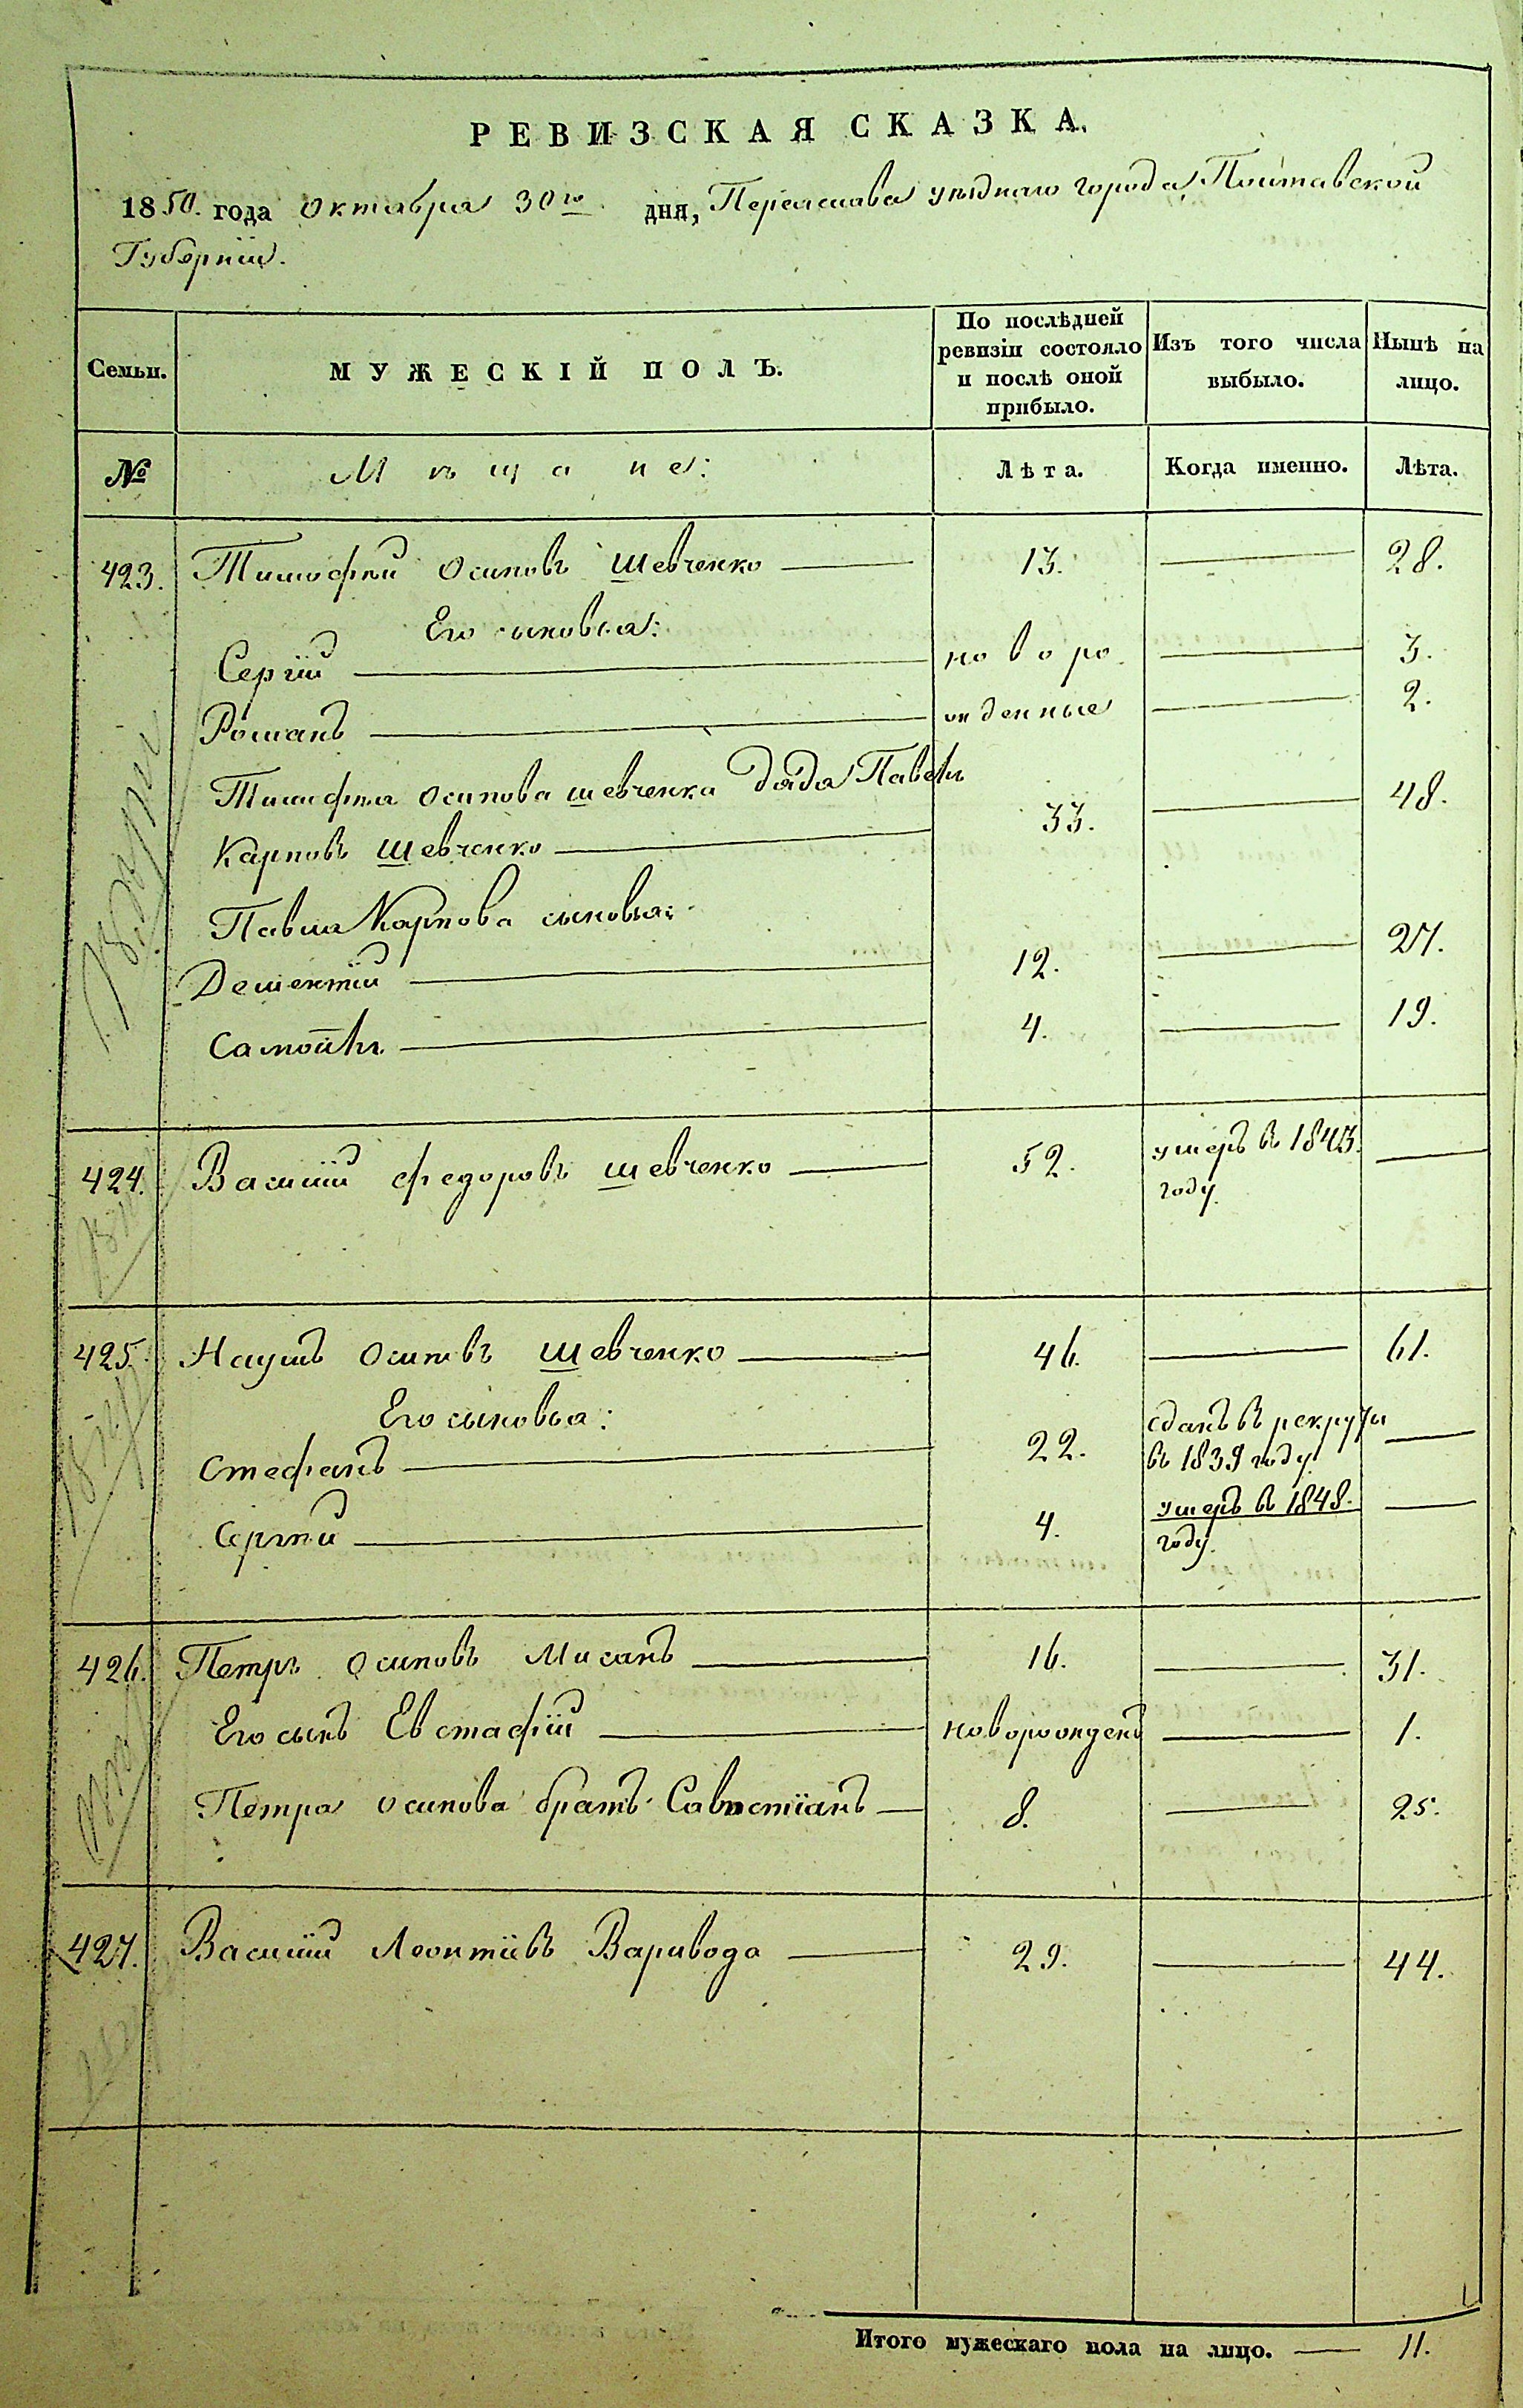 РЕВИЗСКАЯ СКАЗКА.
1850. года Октября 30го дня, Переяслава уѣзднаго города, Полтавской
Губерніи.
Семьи.
МУЖЕСКІЙ ПОЛЪ.
По послѣдней ревизіи состояло и послѣ оной прибыло.
Изъ того числа выбыло.
Нынѣ на лицо.
№ Мѣщане: Лѣта. Когда именно. Лѣта.
423. Тимофѣй Осиповъ Шевченко — 13. — 28.
Его сыновья:
Сергій — новоро — 3.
Романъ — жденные — 2.
Тимофѣя Осипова Шевченка дядя Павелъ
Карповъ Шевченко — 33. — 48.
Павла Карпова сыновья:
Дементій — 12. — 27.
Самойлъ — 4. — 19.
424. Василій Федоровъ Шевченко — 52. умеръ въ 1843 —
году.
425. Наумъ Осиповъ Шевченко — 46. — 61.
Его сыновья:
Стефанъ — 22. сданъ въ рекруты —
въ 1839 году.
Сергѣй — 4. умеръ въ 1848. —
году.
426. Петръ Осиповъ Мисанъ — 16. — 31.
Его сынъ Евстафій — новорожденъ — 1.
Петра Осипова братъ Савостіанъ — 8. — 25.
427. Василій Леонтіевъ Варивода — 29. — 44.
Итого мужескаго пола на лицо. — 11.